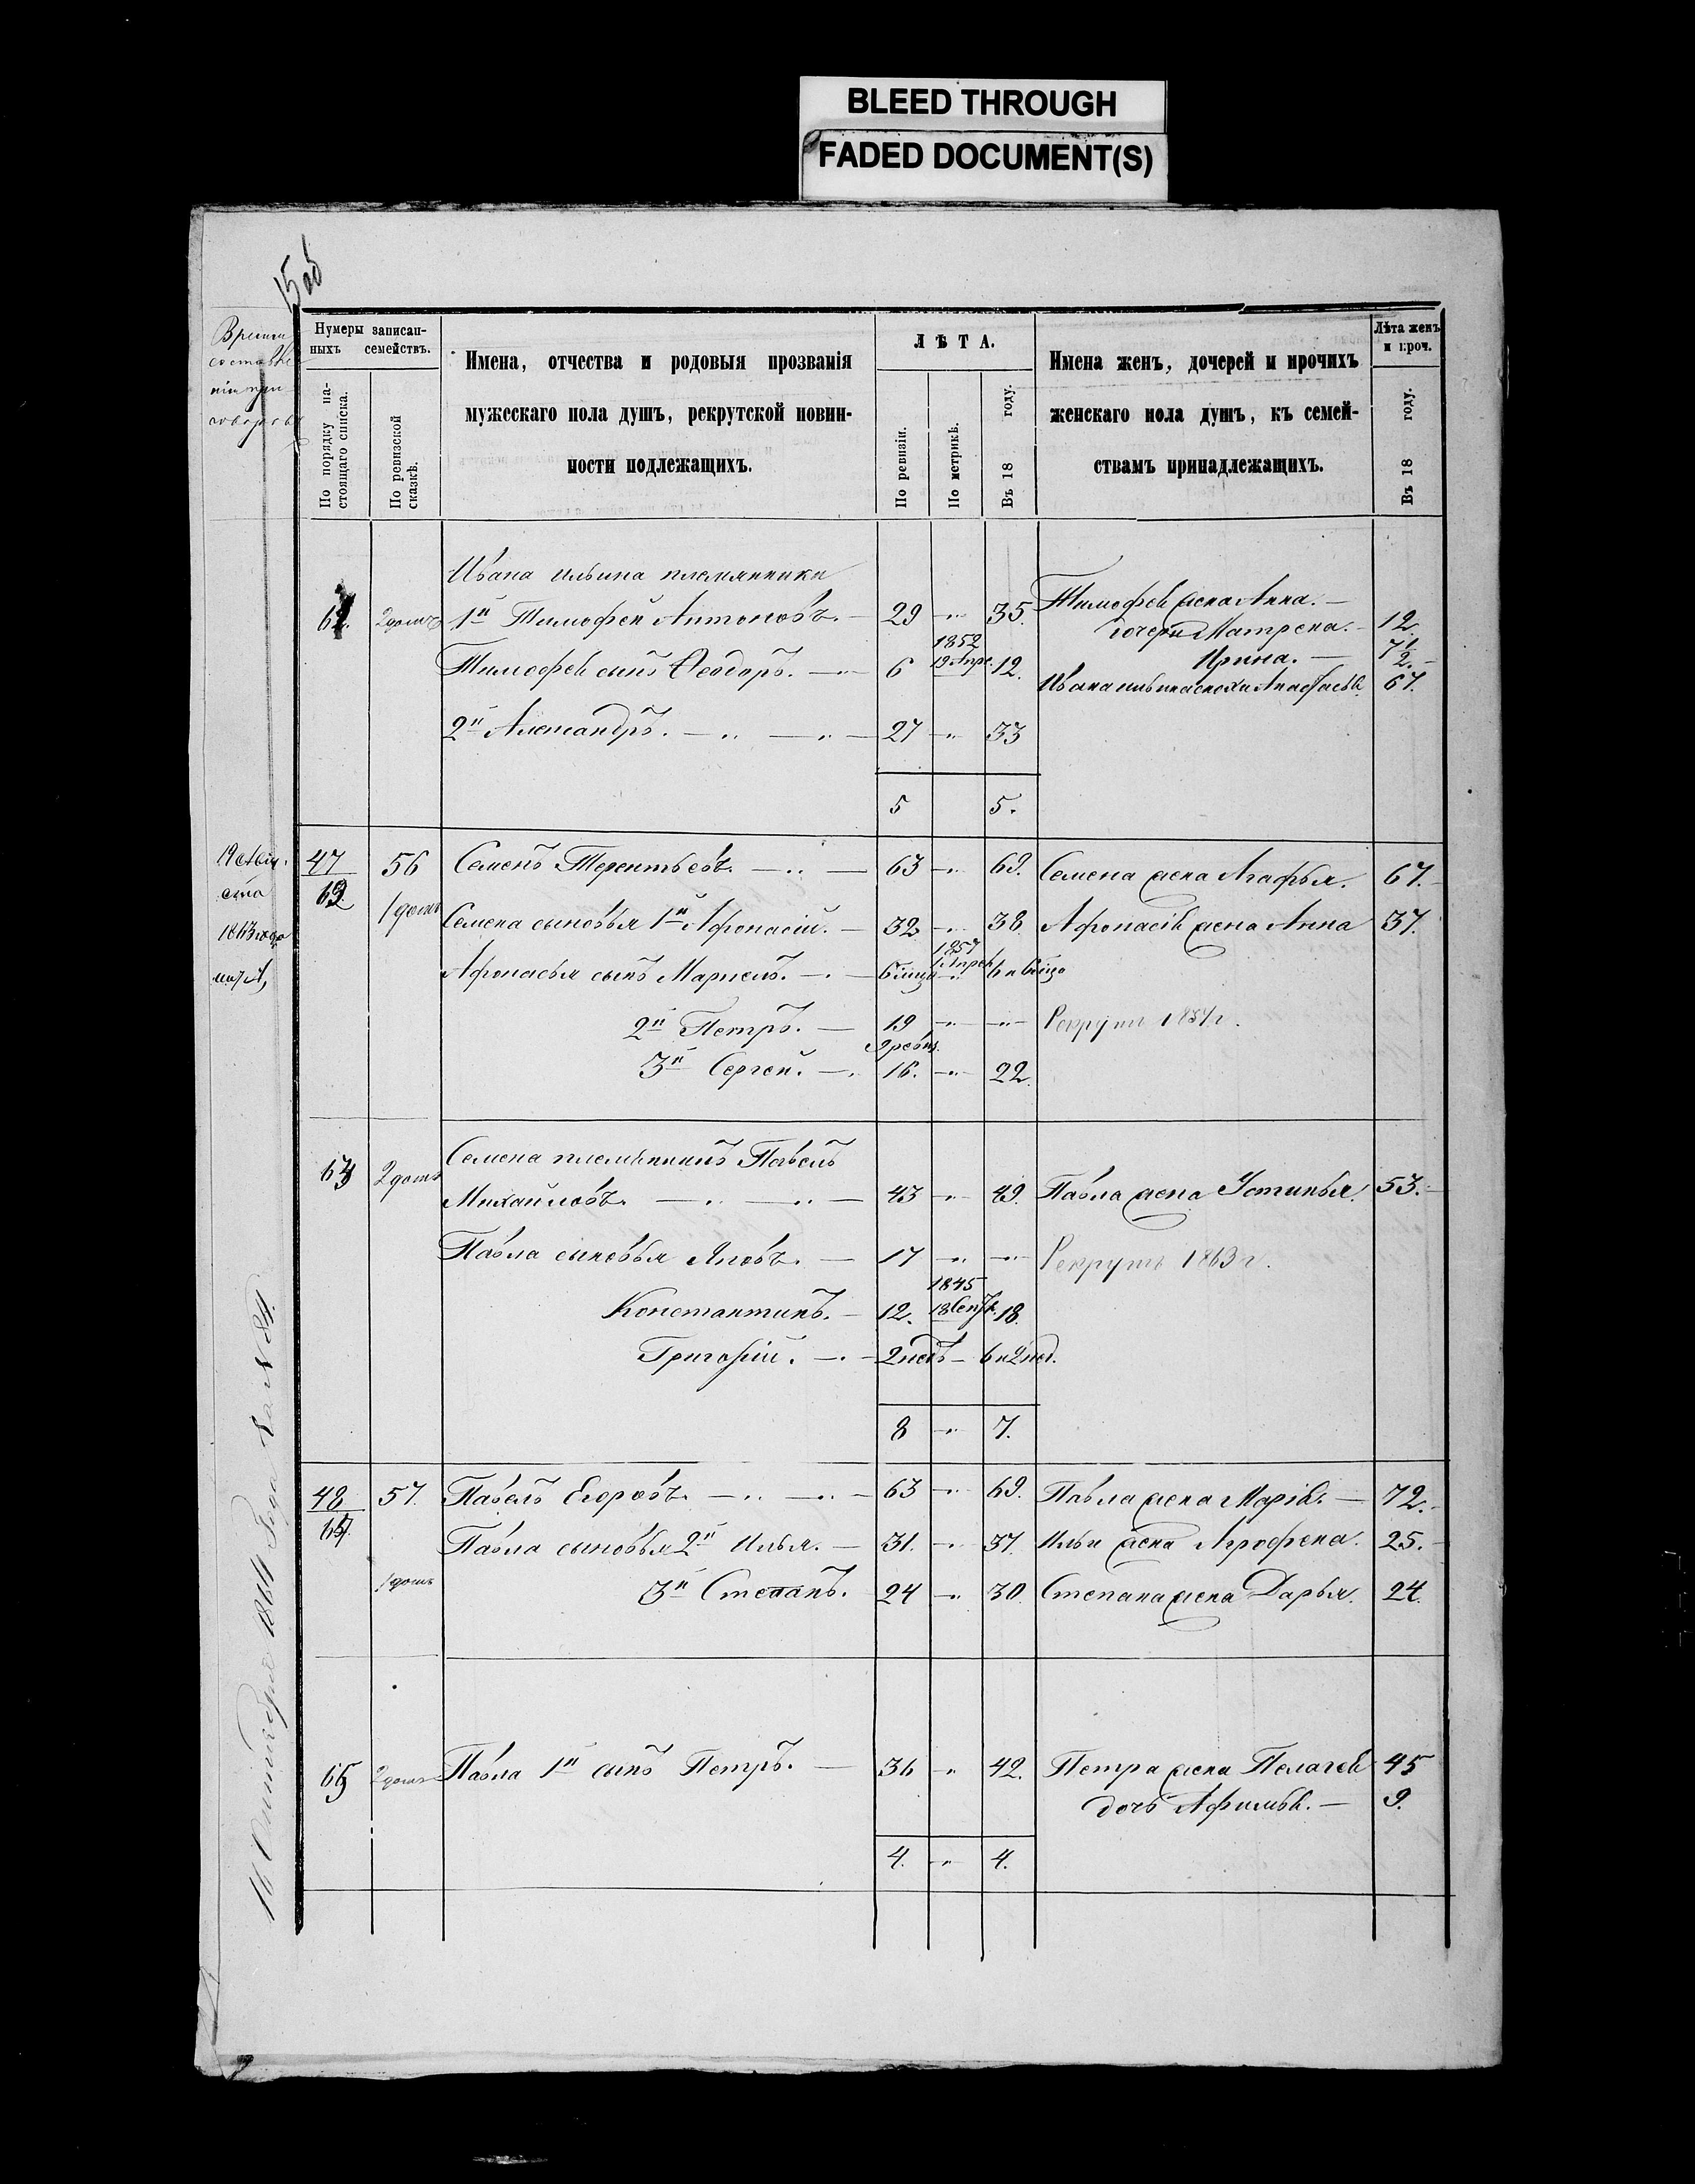 BLEED THROUGH
FADED DOCUMENT(S)
15 об
Нумеры записан-
ныхъ семействъ.
По порядку на-
стоящаго списка.
По ревизской
сказкѣ.
Имена, отчества и родовыя прозванія
мужескаго пола душъ, рекрутской повин-
ности подлежащихъ.
ЛѢТА.
По ревизіи.
По метрикѣ.
Въ 18 году.
Имена женъ, дочерей и прочихъ
женскаго пола душъ, къ семей-
ствамъ принадлежащихъ.
Лѣта женъ
и проч.
Въ 18 году.
Ивана Ильина племянники
2 домъ 1й Тимофей Антоновъ. 29 35. Тимофея жена Анна.
дочери Матрена. 12.
Тимофея сынъ Ѳеодоръ. 6 1852 19 Апре. 12. Ирина. 7 1/2.
Анастасья 67.
2й Александръ. 27 33
5 5.
47 56 Семенъ Терентьевъ. 63 69. Семена жена Агафья. 67.
1 домъ Семена сыновья 1й Афонасій. 32 38. Афонасія жена Анна 37.
Афонасья сынъ 1857
2й Петръ. 19 Рекрутъ
3й Сергей. 16. 22.
63 2 домъ Семена племянникъ Павелъ
Михайловъ. 43 49. Павла жена Устинья. 53.
Павла сыновья Яковъ. 17 Рекрутъ 1863 г.
Константинъ. 12. 1845 18 Сентя. 18.
Григорій. 2 нед. 6 и 2 нед.
8 7.
48 57. Павелъ Егоровъ. 63 69. Павла жена Марія. 72.
Павла сыновья 2й Илья. 31. 37. Ильи жена Агрофена. 25.
1 домъ 3й Степанъ. 24 30. Степана жена Дарья. 24.
65 2 домъ Павла 1й сынъ Петръ. 36 42. Петра жена Пелагея 45
дочь 9.
4. 4.
1863 года
1864 года за №